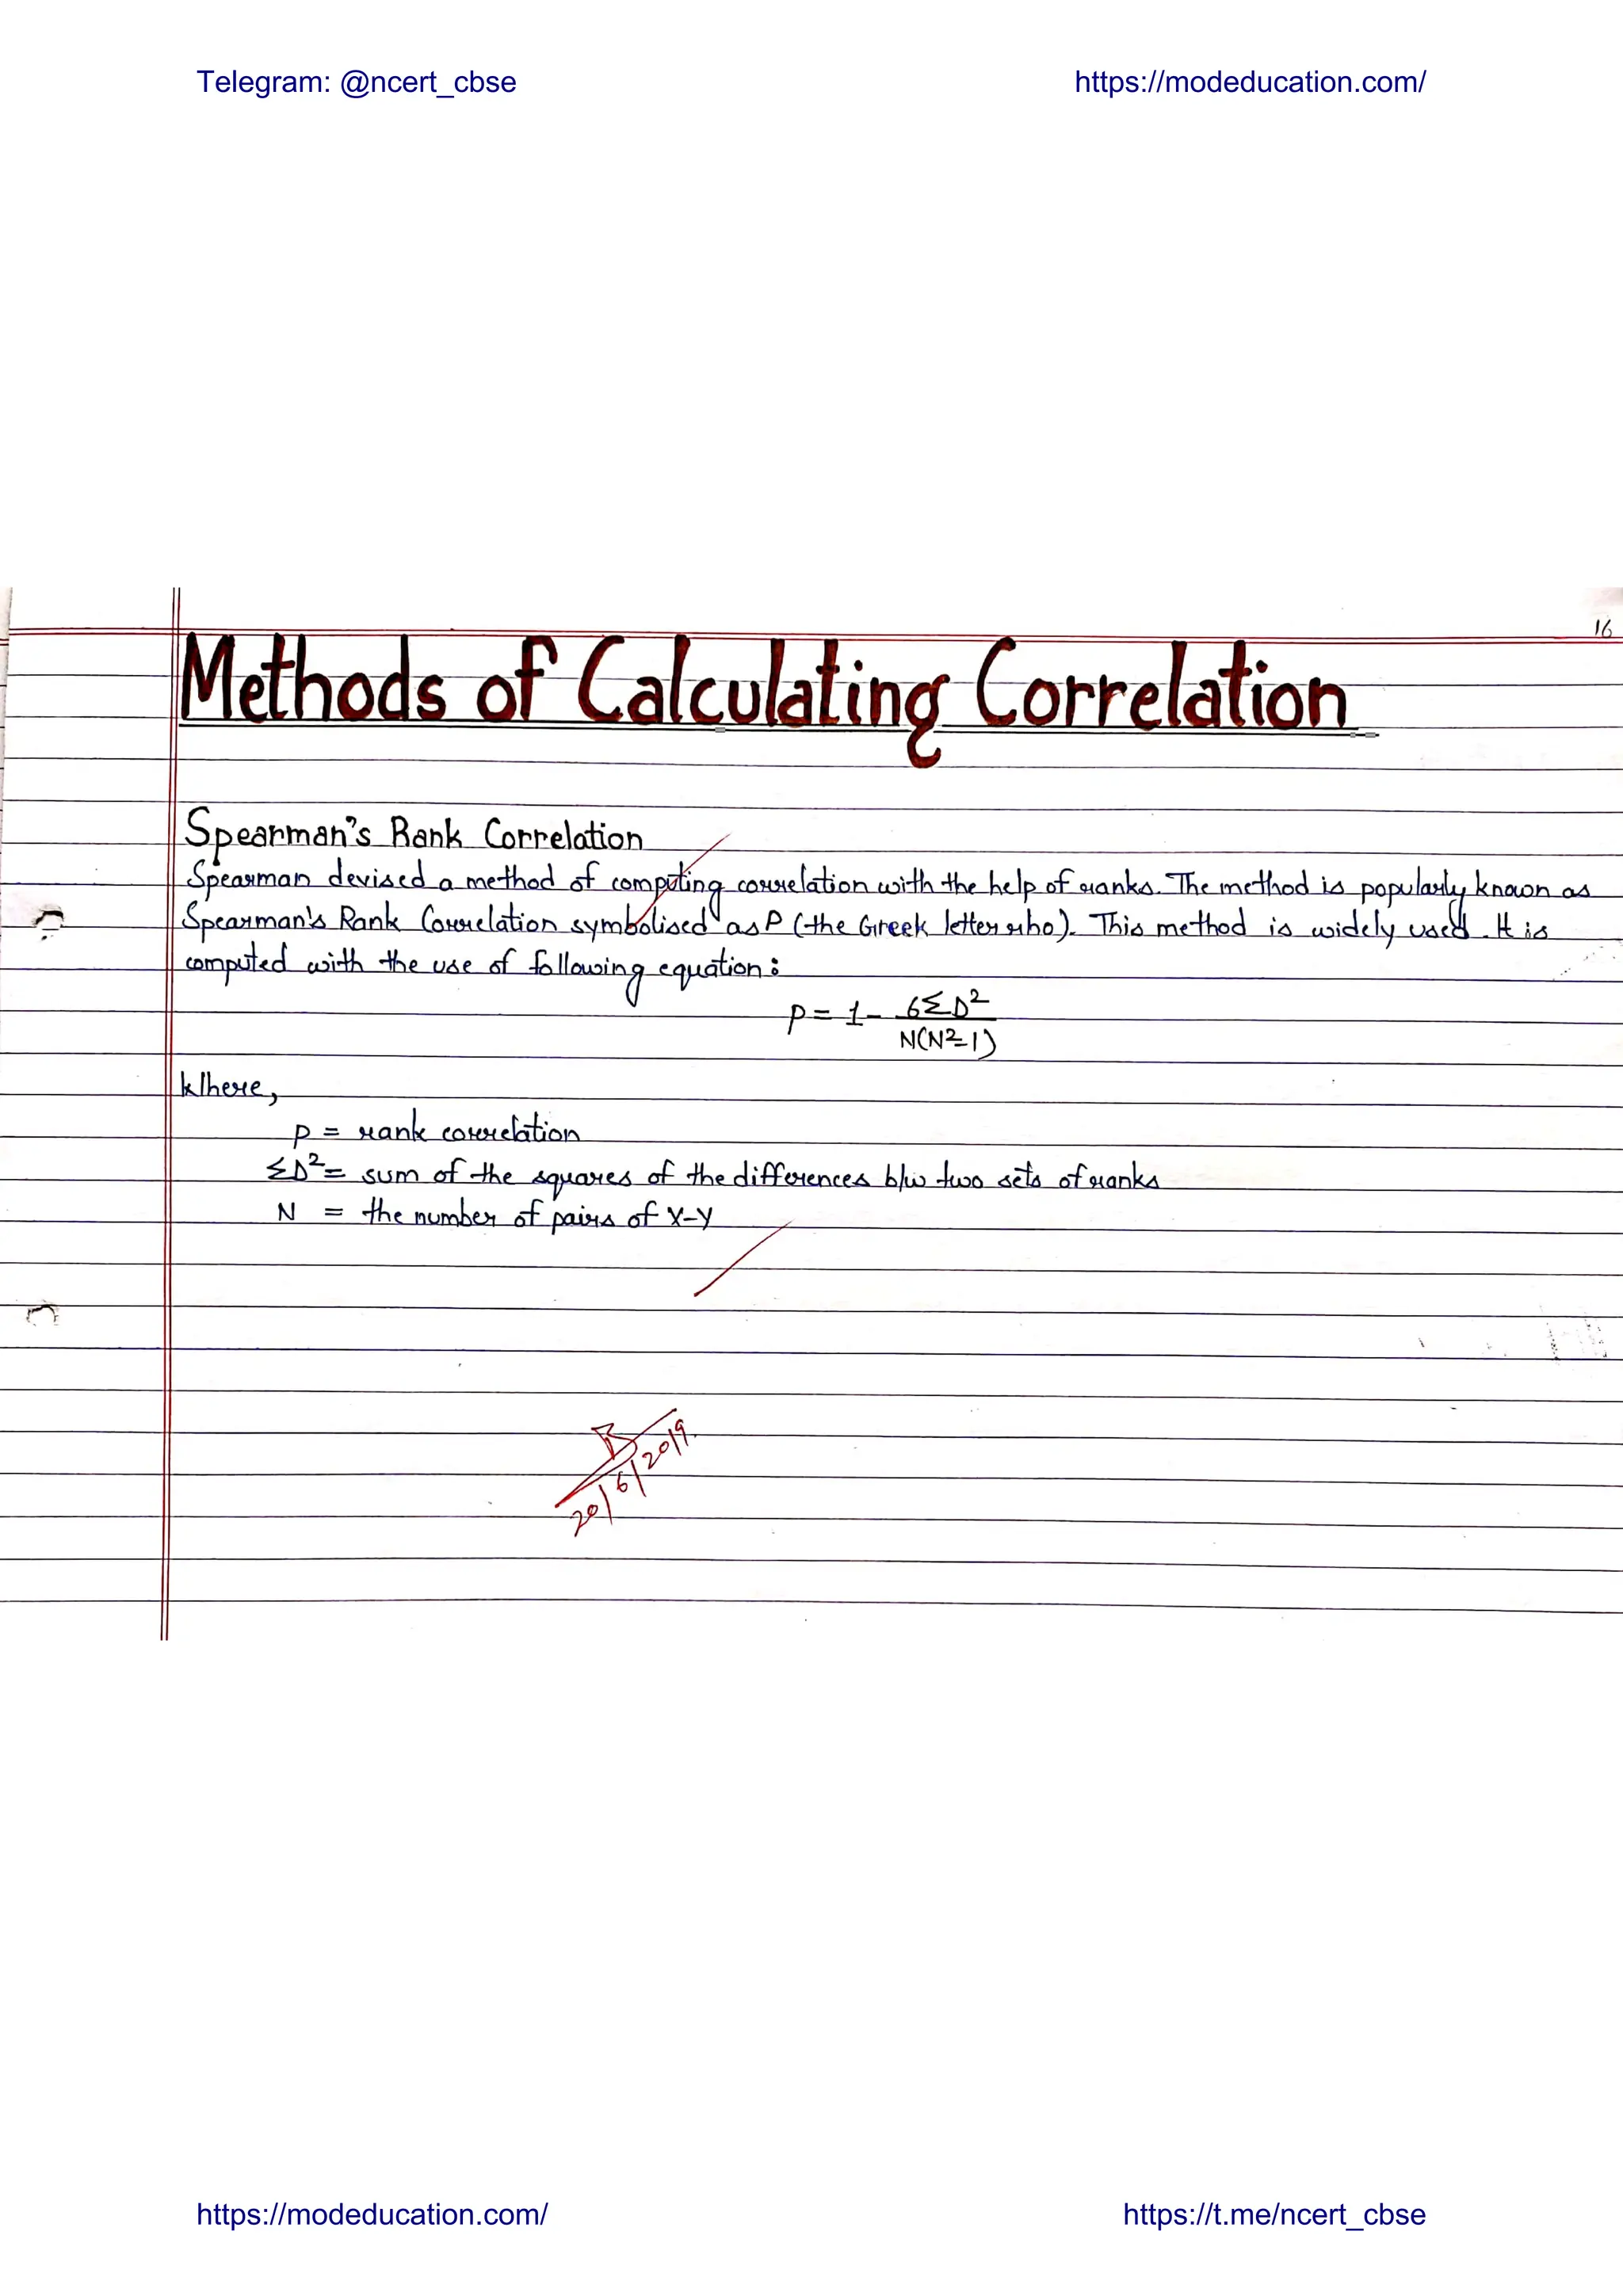 Telegram: @ncert_cbse https://modeducation.com/
16
Methods of Calculating Correlation
Spearman's Rank Correlation
Spearman devised a method of computing correlation with the help of ranks. The method is popularly known as
Spearman's Rank Correlation symbolised as P (the Greek letter rho). This method is widely used. It is
computed with the use of following equation:
P = 1 - 6ΣD²
N(N²-1)
Where,
P = rank correlation
ΣD² = sum of the squares of the differences b/w two sets of ranks
N = the number of pairs of X-Y
20/6/2019.
https://modeducation.com/ https://t.me/ncert_cbse